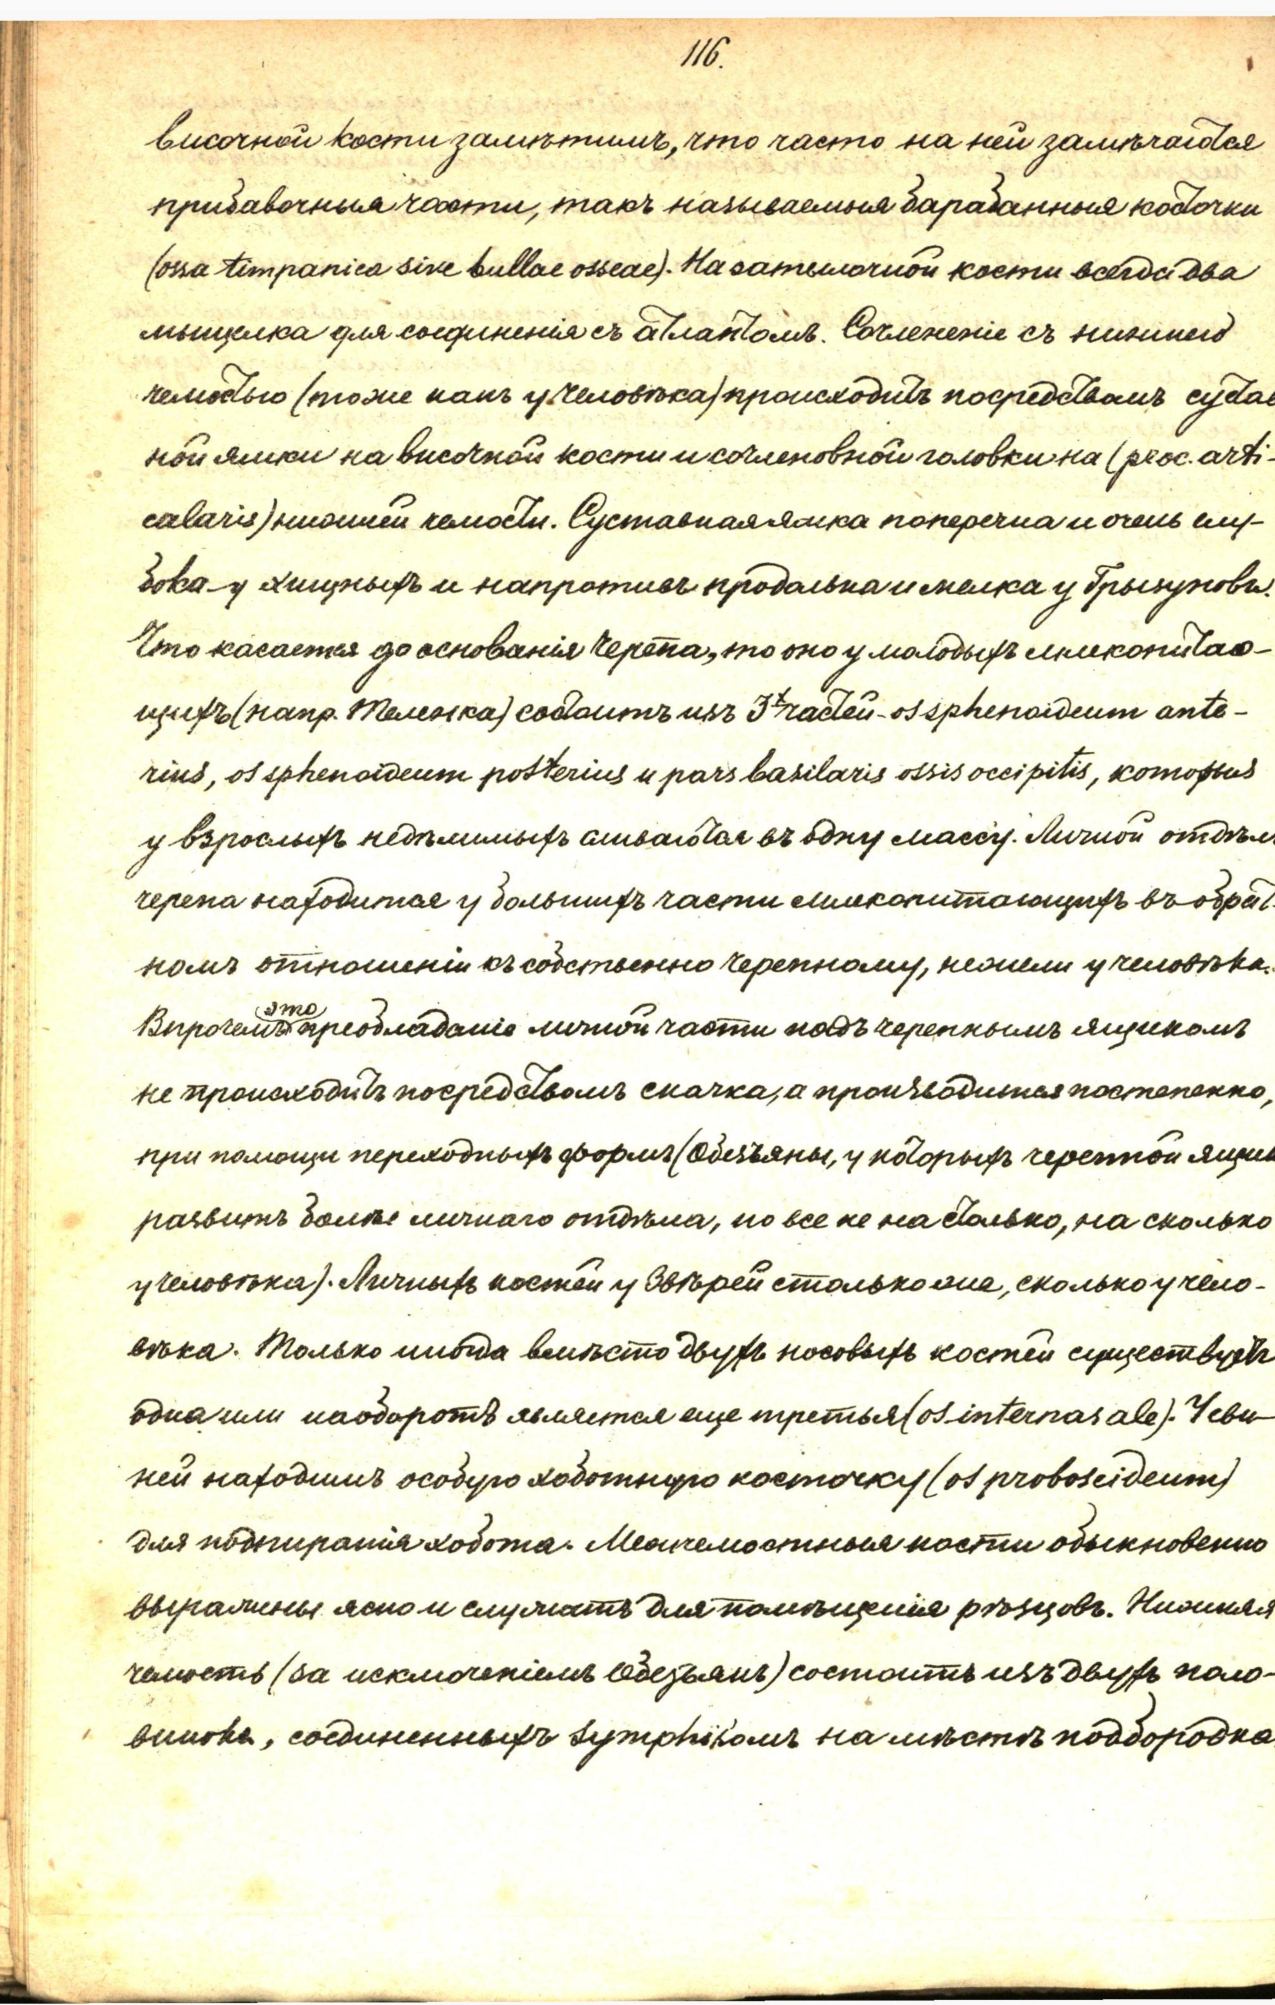 116.
височной кости заметимъ, что часто на ней замѣчаются
прибавочныя части, такъ называемыя барабанныя косточки
(ossa timpanica sive bullae osseae). На затылочной кости всегда два
мыщелка для соединенія съ атлантомъ. Сочлененіе съ нижнею
челюстью (тоже какъ у человѣка) происходитъ посредствомъ сустав
ной ямки на височной кости и сочленовной головки на (proc. arti-
calaris) нижней челюсти. Суставная ямка поперечна и очень глу-
бока у хищныхъ и напротивъ продольна и мелка у Грызуновъ.
Что касается до основанія черепа, то оно у молодыхъ млекопитаю-
щихъ (напр. Теленка) состоитъ изъ 3х частей - os sphenoideum ante-
rius, os sphenoideum posterius и pars basilaris ossis occipitis, которыя
у взрослыхъ недѣлимыхъ сливаются въ одну массу. Личной отдѣлъ
черепа находится у большихъ части млекопитающихъ въ обрат-
номъ отношеніи къ собственно черепному, нежели у человѣка.
Впрочемъ это преобладаніе личной части надъ черепнымъ ящикомъ
не происходитъ посредствомъ скачка, а производится постепенно,
при помощи переходныхъ формъ (Обезьяны, у которыхъ черепной ящик
развитъ болѣе личнаго отдѣла, но все не на столько, на сколько
у человѣка). Личныхъ костей у Звѣрей столько же, сколько у чело-
вѣка. Только иногда вмѣсто двухъ носовыхъ костей существуетъ
одна или наоборотъ является еще третья (os internasale). У сви-
ней находимъ особую хоботную косточку (os proboscideum)
для подпиранія хобота. Межчелюстныя кости обыкновенно
выражены ясно и служатъ для помѣщенія рѣзцовъ. Нижняя
челюсть (за исключеніемъ Обезьянъ) состоитъ изъ двухъ поло-
винокъ, соединенныхъ symphisомъ на мѣстѣ подбородка